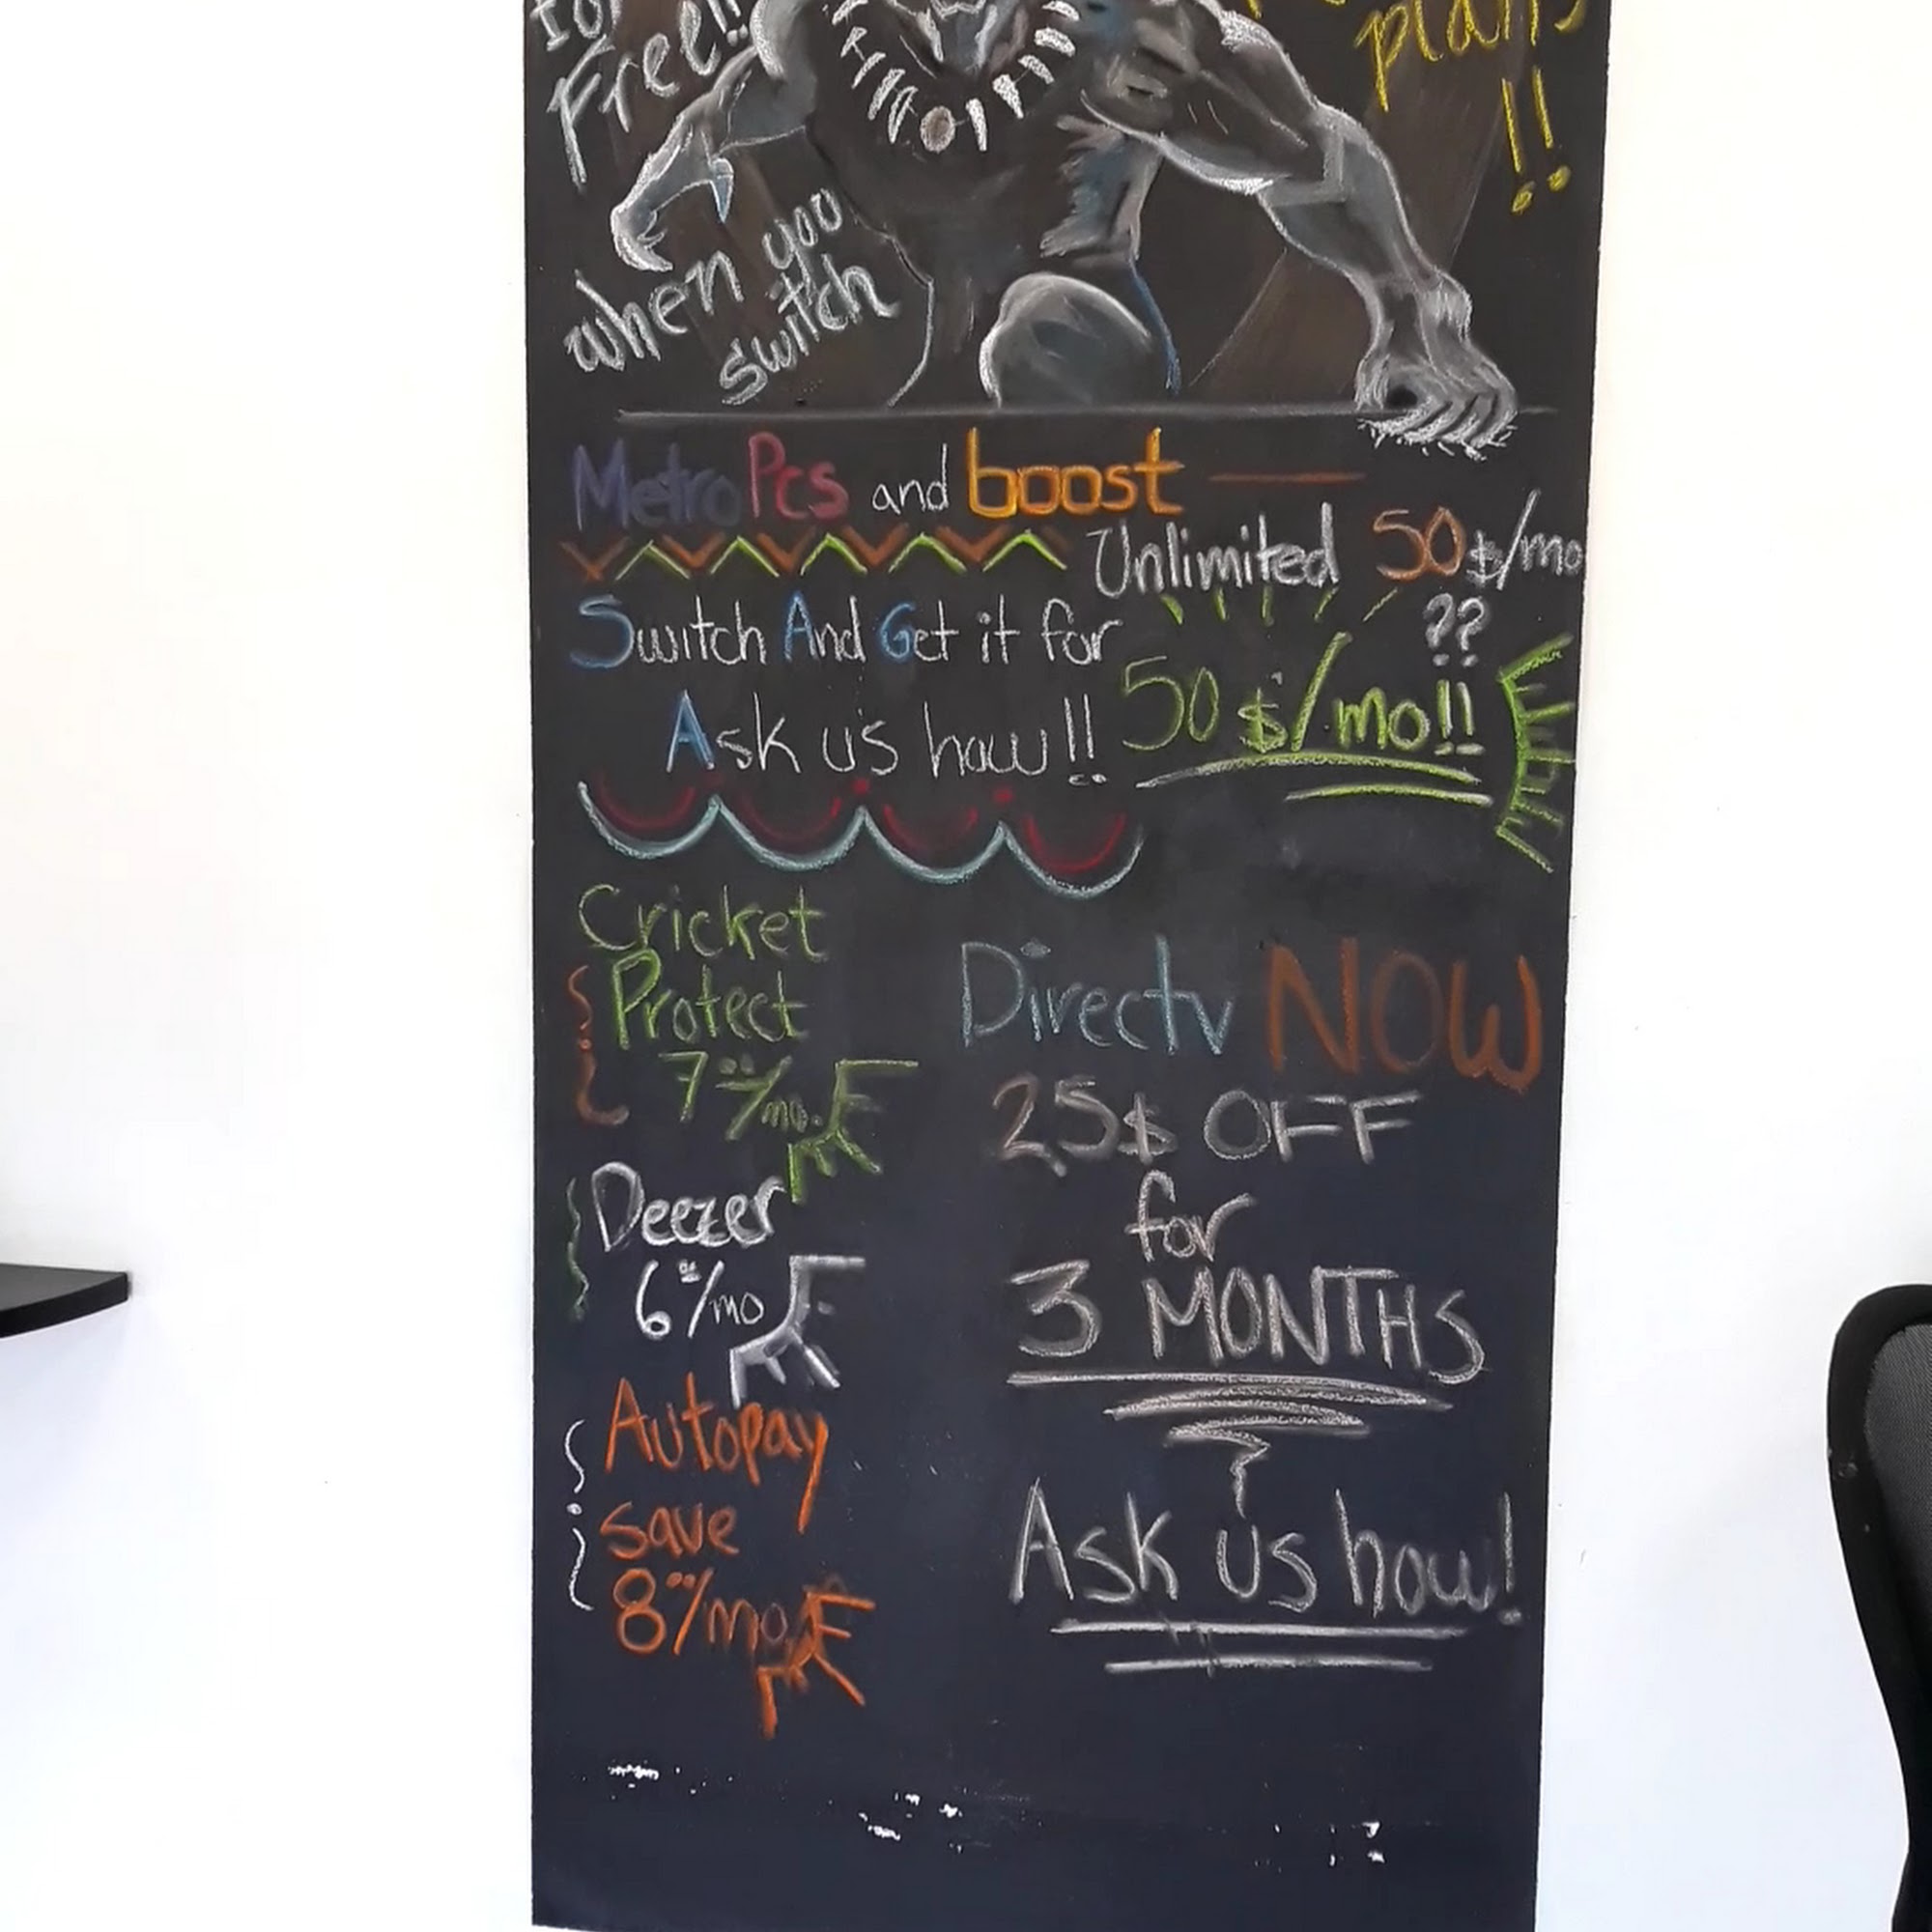 for
Free!!
plans
!!
when you
switch
MetroPcs and boost —
Unlimited 50$/mo
??
Switch And Get it for
50$/mo!!
Ask us how!!
Cricket
Protect
7⁰⁰/mo.
Deezer
6⁰⁰/mo
Autopay
save
8⁰⁰/mo
Directv NOW
25$ OFF
for
3 MONTHS
Ask us how!